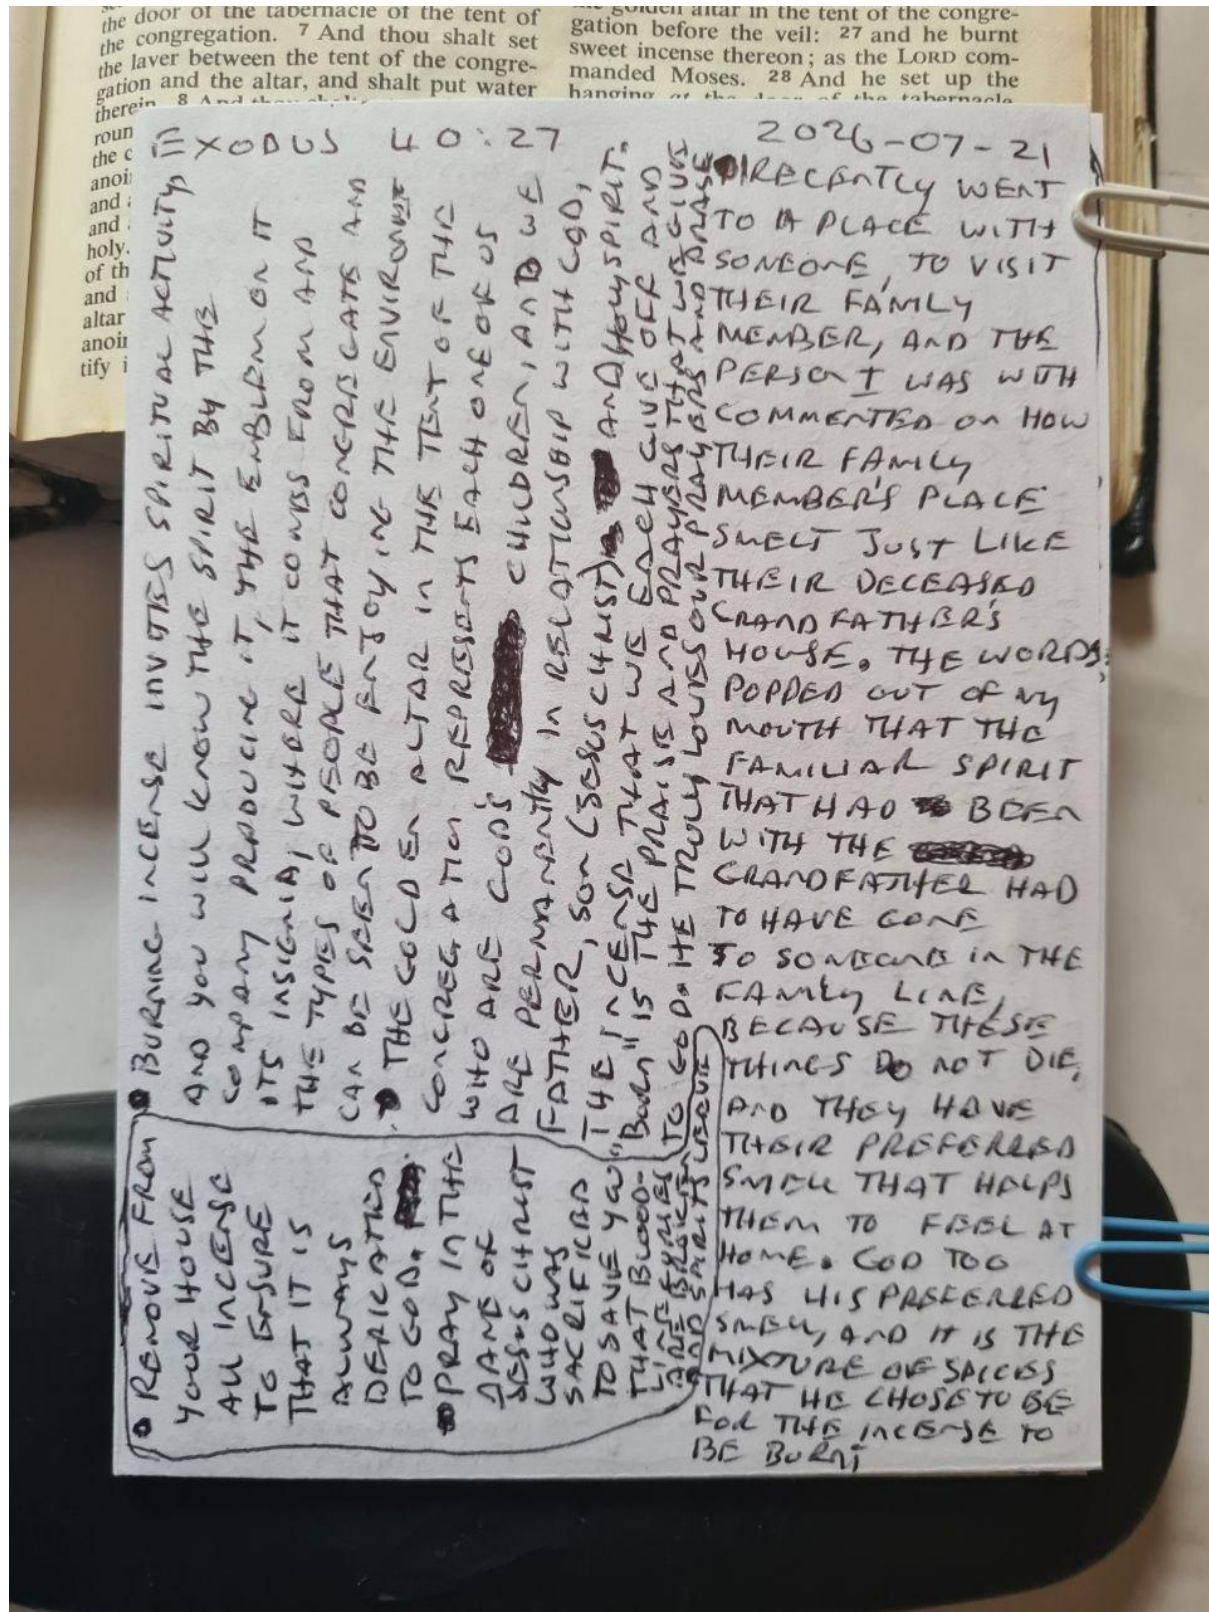 the door of the tabernacle of the tent of
the congregation. 7 And thou shalt set
the laver between the tent of the congre-
gation and the altar, and shalt put water
therein. 8 And thou
roun
the c
anoi
and
and
holy.
of th
and
altar
anoi
tify i
golden altar in the tent of the congre-
gation before the veil: 27 and he burnt
sweet incense thereon; as the LORD com-
manded Moses. 28 And he set up the
hanging at the door of the tabernacle
EXODUS 40:27
2026-07-21
I RECENTLY WENT
TO A PLACE WITH
SOMEONE, TO VISIT
THEIR FAMILY
MEMBER, AND THE
PERSON I WAS WITH
COMMENTED ON HOW
THEIR FAMILY
MEMBER'S PLACE
SMELT JUST LIKE
THEIR DECEASED
GRANDFATHER'S
HOUSE. THE WORDS
POPPED OUT OF MY
MOUTH THAT THE
FAMILIAR SPIRIT
THAT HAD BEEN
WITH THE
GRANDFATHER HAD
TO HAVE GONE
TO SOMEONE IN THE
FAMILY LINE,
BECAUSE THESE
THINGS DO NOT DIE,
AND THEY HAVE
THEIR PREFERRED
SMELL THAT HELPS
THEM TO FEEL AT
HOME. GOD TOO
HAS HIS PREFERRED
SMELL, AND IT IS THE
MIXTURE OF SPICES
THAT HE CHOSE TO BE
FOR THE INCENSE TO
BE BURNT
• BURNING INCENSE INVITES SPIRITUAL ACTIVITY,
AND YOU WILL KNOW THE SPIRIT BY THE
COMPANY PRODUCING IT, THE EMBLEM ON IT
ITS INSIGNIA, WHERE IT COMES FROM AND
THE TYPES OF PEOPLE THAT CONGREGATE AND
CAN BE SEEN TO BE ENJOYING THE ENVIRONMENT
• THE GOLDEN ALTAR IN THE TENT OF THE
CONGREGATION REPRESENTS EACH ONE OF US
WHO ARE GOD'S CHILDREN, AND WE
ARE PERMANENTLY IN RELATIONSHIP WITH GOD,
FATHER, SON (JESUS CHRIST) AND HOLY SPIRIT.
THE INCENSE THAT WE EACH GIVE OFF AND
"BURN" IS THE PRAISE AND PRAYERS THAT WE GIVE
TO GOD. HE TRULY LOVES OUR PRAYERS AND PRAISE
• REMOVE FROM
YOUR HOUSE
ALL INCENSE
TO ENSURE
THAT IT IS
ALWAYS
DEDICATED
TO GOD.
• PRAY IN THE
NAME OF
JESUS CHRIST
WHO WAS
SACRIFICED
TO SAVE YOU
THAT BLOOD-
LINE CURSES
ARE BROKEN
AND SPIRITS LEAVE